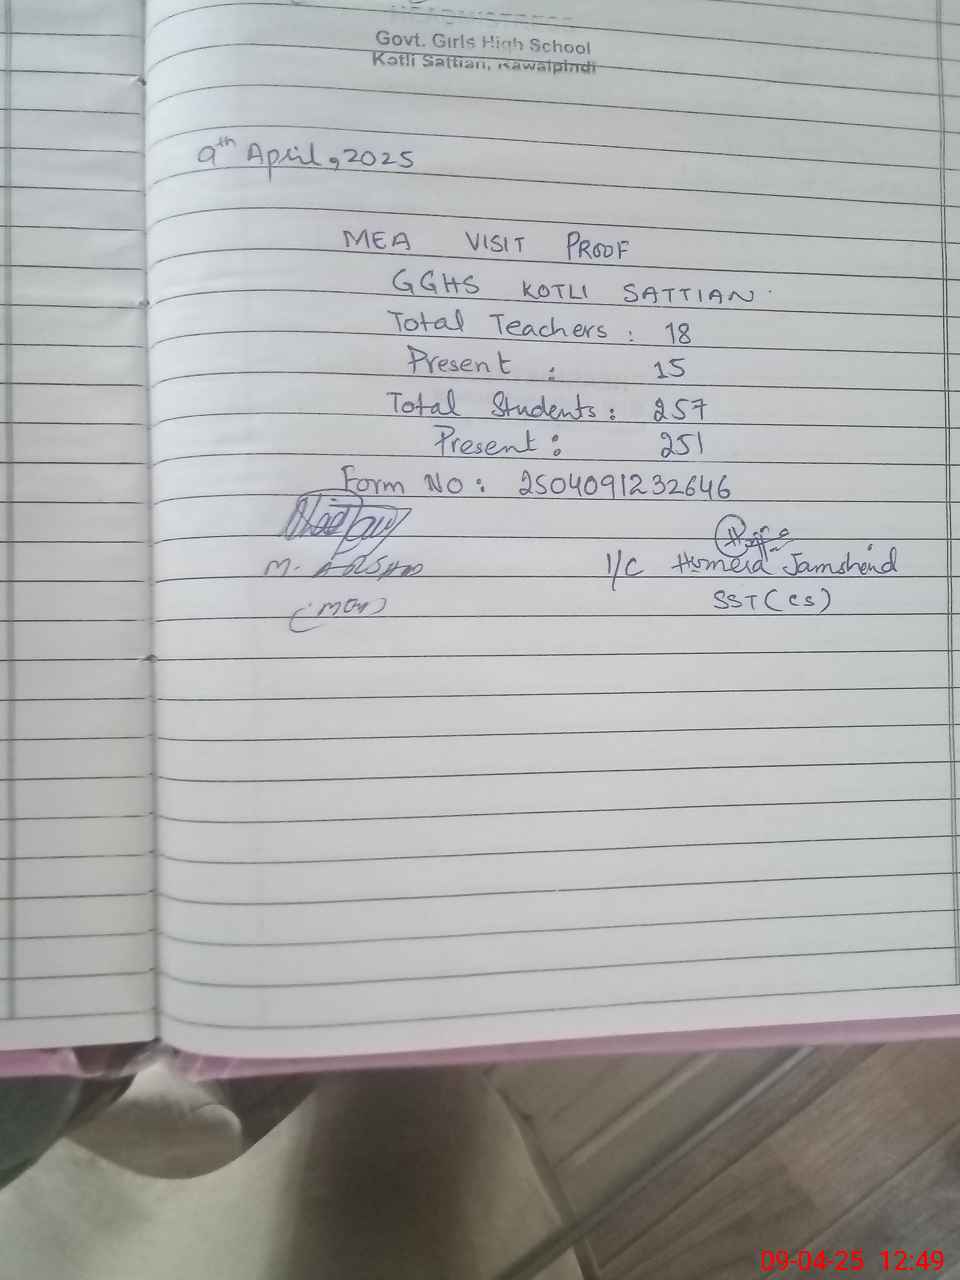 HEADMISTRESS
Govt. Girls High School
Kotli Sattian, Rawalpindi
9th April, 2025
MEA VISIT PROOF
GGHS KOTLI SATTIAN
Total Teachers : 18
Present : 15
Total Students : 257
Present : 251
Form No : 2504091232646
M. ARSHAD
I/C Humera Jamshend
SST (CS)
09-04-25 12:49